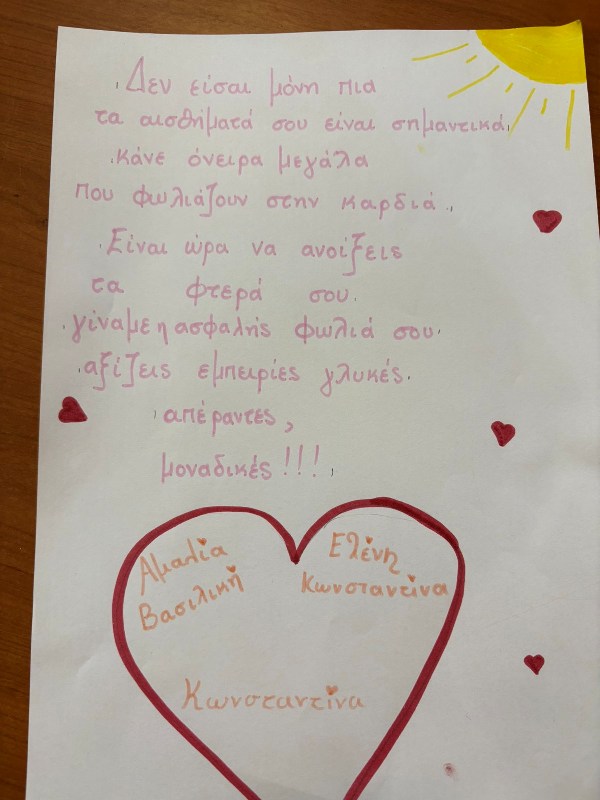 Δεν είσαι μόνη πια
τα αισθήματά σου είναι σημαντικά.
κάνε όνειρα μεγάλα
που φωλιάζουν στην καρδιά.
Είναι ώρα να ανοίξεις
τα φτερά σου.
γίναμε η ασφαλής φωλιά σου.
αξίζεις εμπειρίες γλυκές.
απέραντες,
μοναδικές!!!
Αμαλία
Βασιλική
Ελένη
Κωνσταντίνα
Κωνσταντίνα